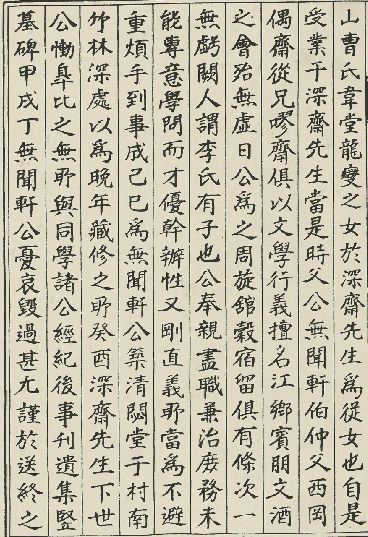 山曹氏韋堂龍燮之女於深齋先生爲從女也自是
受業于深齋先生當是時父公無聞軒伯仲父西岡
偶齋從兄嘐齋俱以文學行義擅名江鄉賓朋文酒
之會殆無虛日公爲之周旋舘穀宿留俱有條次一
無虧闕人謂李氏有子也公奉親盡職兼治庶務未
能專意學問而才優幹辦性又剛直義所當爲不避
重煩手到事成己巳爲無聞軒公築淸閟堂于村南
竹林深處以爲晩年藏修之所癸酉深齋先生下世
公慟臯比之無所與同學諸公經紀後事刊遺集竪
墓碑甲戌丁無聞軒公憂哀毀過甚尤謹於送終之